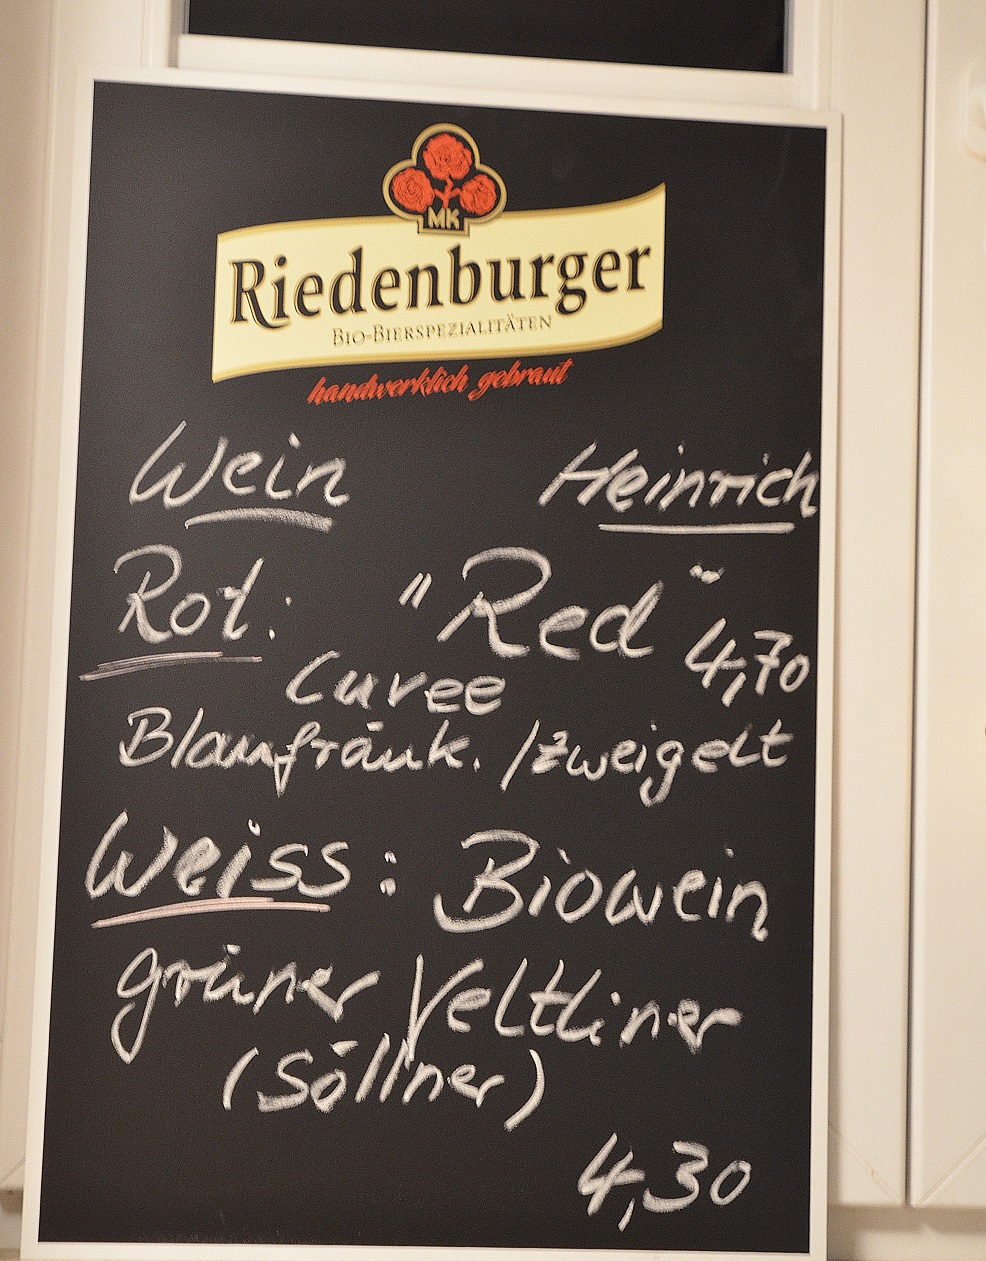 MK
Riedenburger
BIO-BIERSPEZIALITÄTEN
handwerklich gebraut
Wein Heinrich
Rot: "Red" 4,70
Cuvee
Blaufränk. / Zweigelt
Weiss: Biowein
grüner Veltliner
(Söllner)
4,30